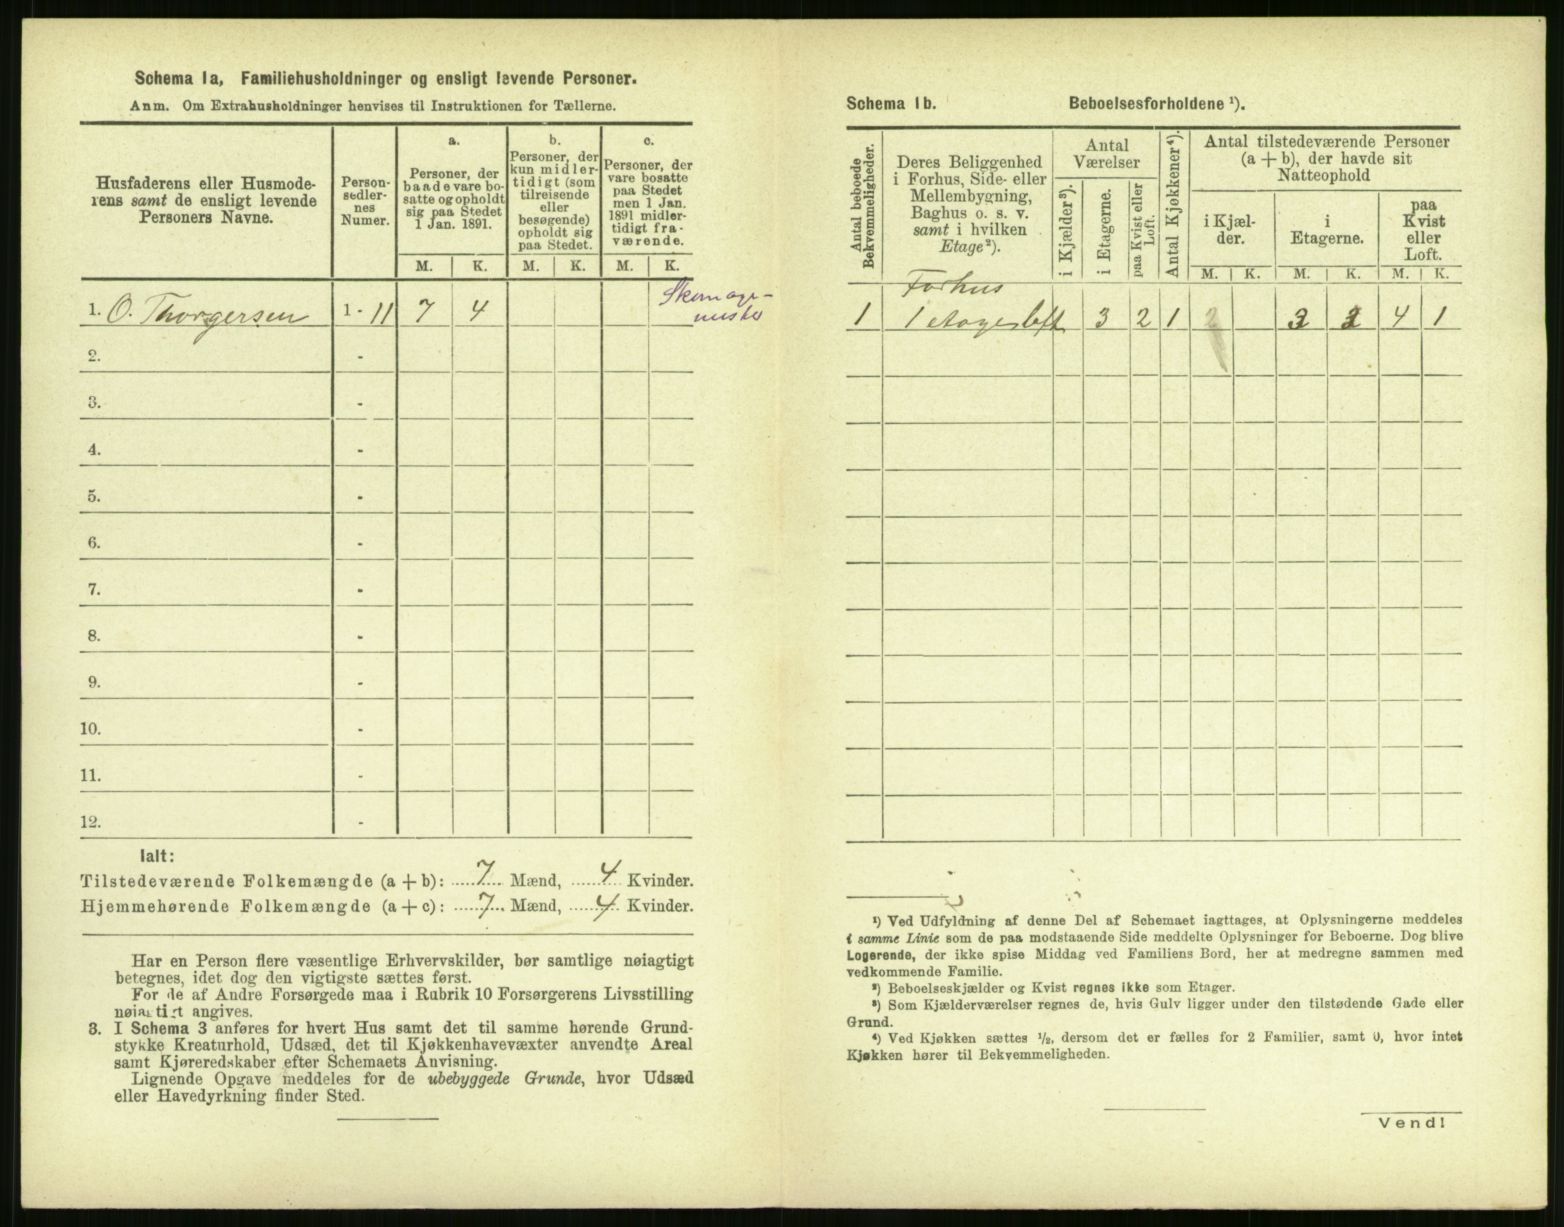 Schema 1a, Familiehusholdninger og ensligt levende Personer.
Anm. Om Extrahusholdninger henvises til Instruktionen for Tællerne.
Husfaderens eller Husmode-
rens samt de ensligt levende
Personers Navne.
Person-
sedler-
nes
Numer.
a.
Personer, der
baade vare bo-
satte og opholdt
sig paa Stedet
1 Jan. 1891.
b.
Personer, der
kun midler-
tidigt (som
tilreisende
eller
besøgende)
opholdt sig
paa Stedet.
c.
Personer, der
vare bosatte
paa Stedet
men 1 Jan.
1891 midler-
tidigt fra-
værende.
M. K. M. K. M. K.
1. O. Thorgersen 1 - 11 7 4 Skomage-
mester
2. -
3. -
4. -
5. -
6. -
7. -
8. -
9. -
10. -
11. -
12. -
Ialt:
Tilstedeværende Folkemængde (a + b): 7 Mænd, 4 Kvinder.
Hjemmehørende Folkemængde (a + c): 7 Mænd, 4 Kvinder.
Har en Person flere væsentlige Erhvervskilder, bør samtlige nøiagtigt
betegnes, idet dog den vigtigste sættes først.
For de af Andre Forsørgede maa i Rubrik 10 Forsørgerens Livsstilling
nøiagtigt angives.
3. I Schema 3 anføres for hvert Hus samt det til samme hørende Grund-
stykke Kreaturhold, Udsæd, det til Kjøkkenhavevæxter anvendte Areal
samt Kjøreredskaber efter Schemaets Anvisning.
Lignende Opgave meddeles for de ubebyggede Grunde, hvor Udsæd
eller Havedyrkning finder Sted.
Schema 1b. Beboelsesforholdene ¹).
Antal beboede
Bekvemmeligheder.
Deres Beliggenhed
i Forhus, Side- eller
Mellembygning,
Baghus o. s. v.
samt i hvilken
Etage²).
Antal
Værelser
i Kjælder³).
i Etagerne.
paa Kvist eller
Loft.
Antal Kjøkkener⁴).
Antal tilstedeværende Personer
(a + b), der havde sit
Natteophold
i Kjæl-
der.
i
Etagerne.
paa
Kvist
eller
Loft.
M. K. M. K. M. K.
Forhus
1 1 etagesloft 3 2 1 2 3 3 4 1
¹) Ved Udfyldning af denne Del af Schemaet iagttages, at Oplysningerne meddeles
i samme Linie som de paa modstaaende Side meddelte Oplysninger for Beboerne. Dog blive
Logerende, der ikke spise Middag ved Familiens Bord, her at medregne sammen med
vedkommende Familie.
²) Beboelseskjælder og Kvist regnes ikke som Etager.
³) Som Kjælderværelser regnes de, hvis Gulv ligger under den tilstødende Gade eller
Grund.
⁴) Ved Kjøkken sættes ½, dersom det er fælles for 2 Familier, samt 0, hvor intet
Kjøkken hører til Bekvemmeligheden.
Vend!